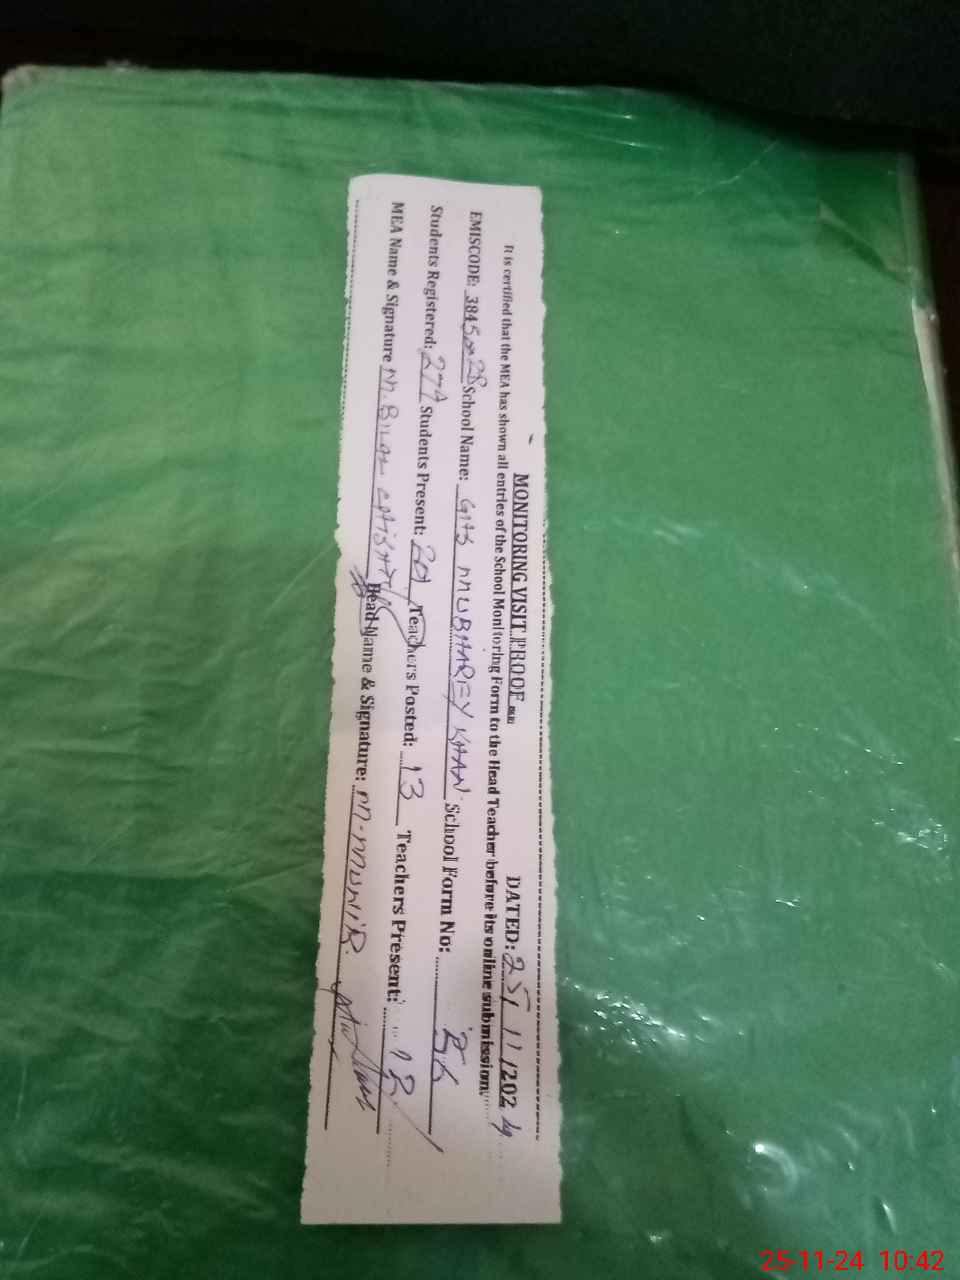 MONITORING VISIT PROOF DATED: 25/11/2024
It is certified that the MEA has shown all entries of the School Monitoring Form to the Head Teacher before its online submission.
EMISCODE: School Name: GHS MUBHAREY KHAN School Form No:
Students Registered: Students Present: Teachers Posted: 13 Teachers Present: 12
MEA Name & Signature M. Bilal Head Name & Signature: M. MUNIR
25-11-24 10:42